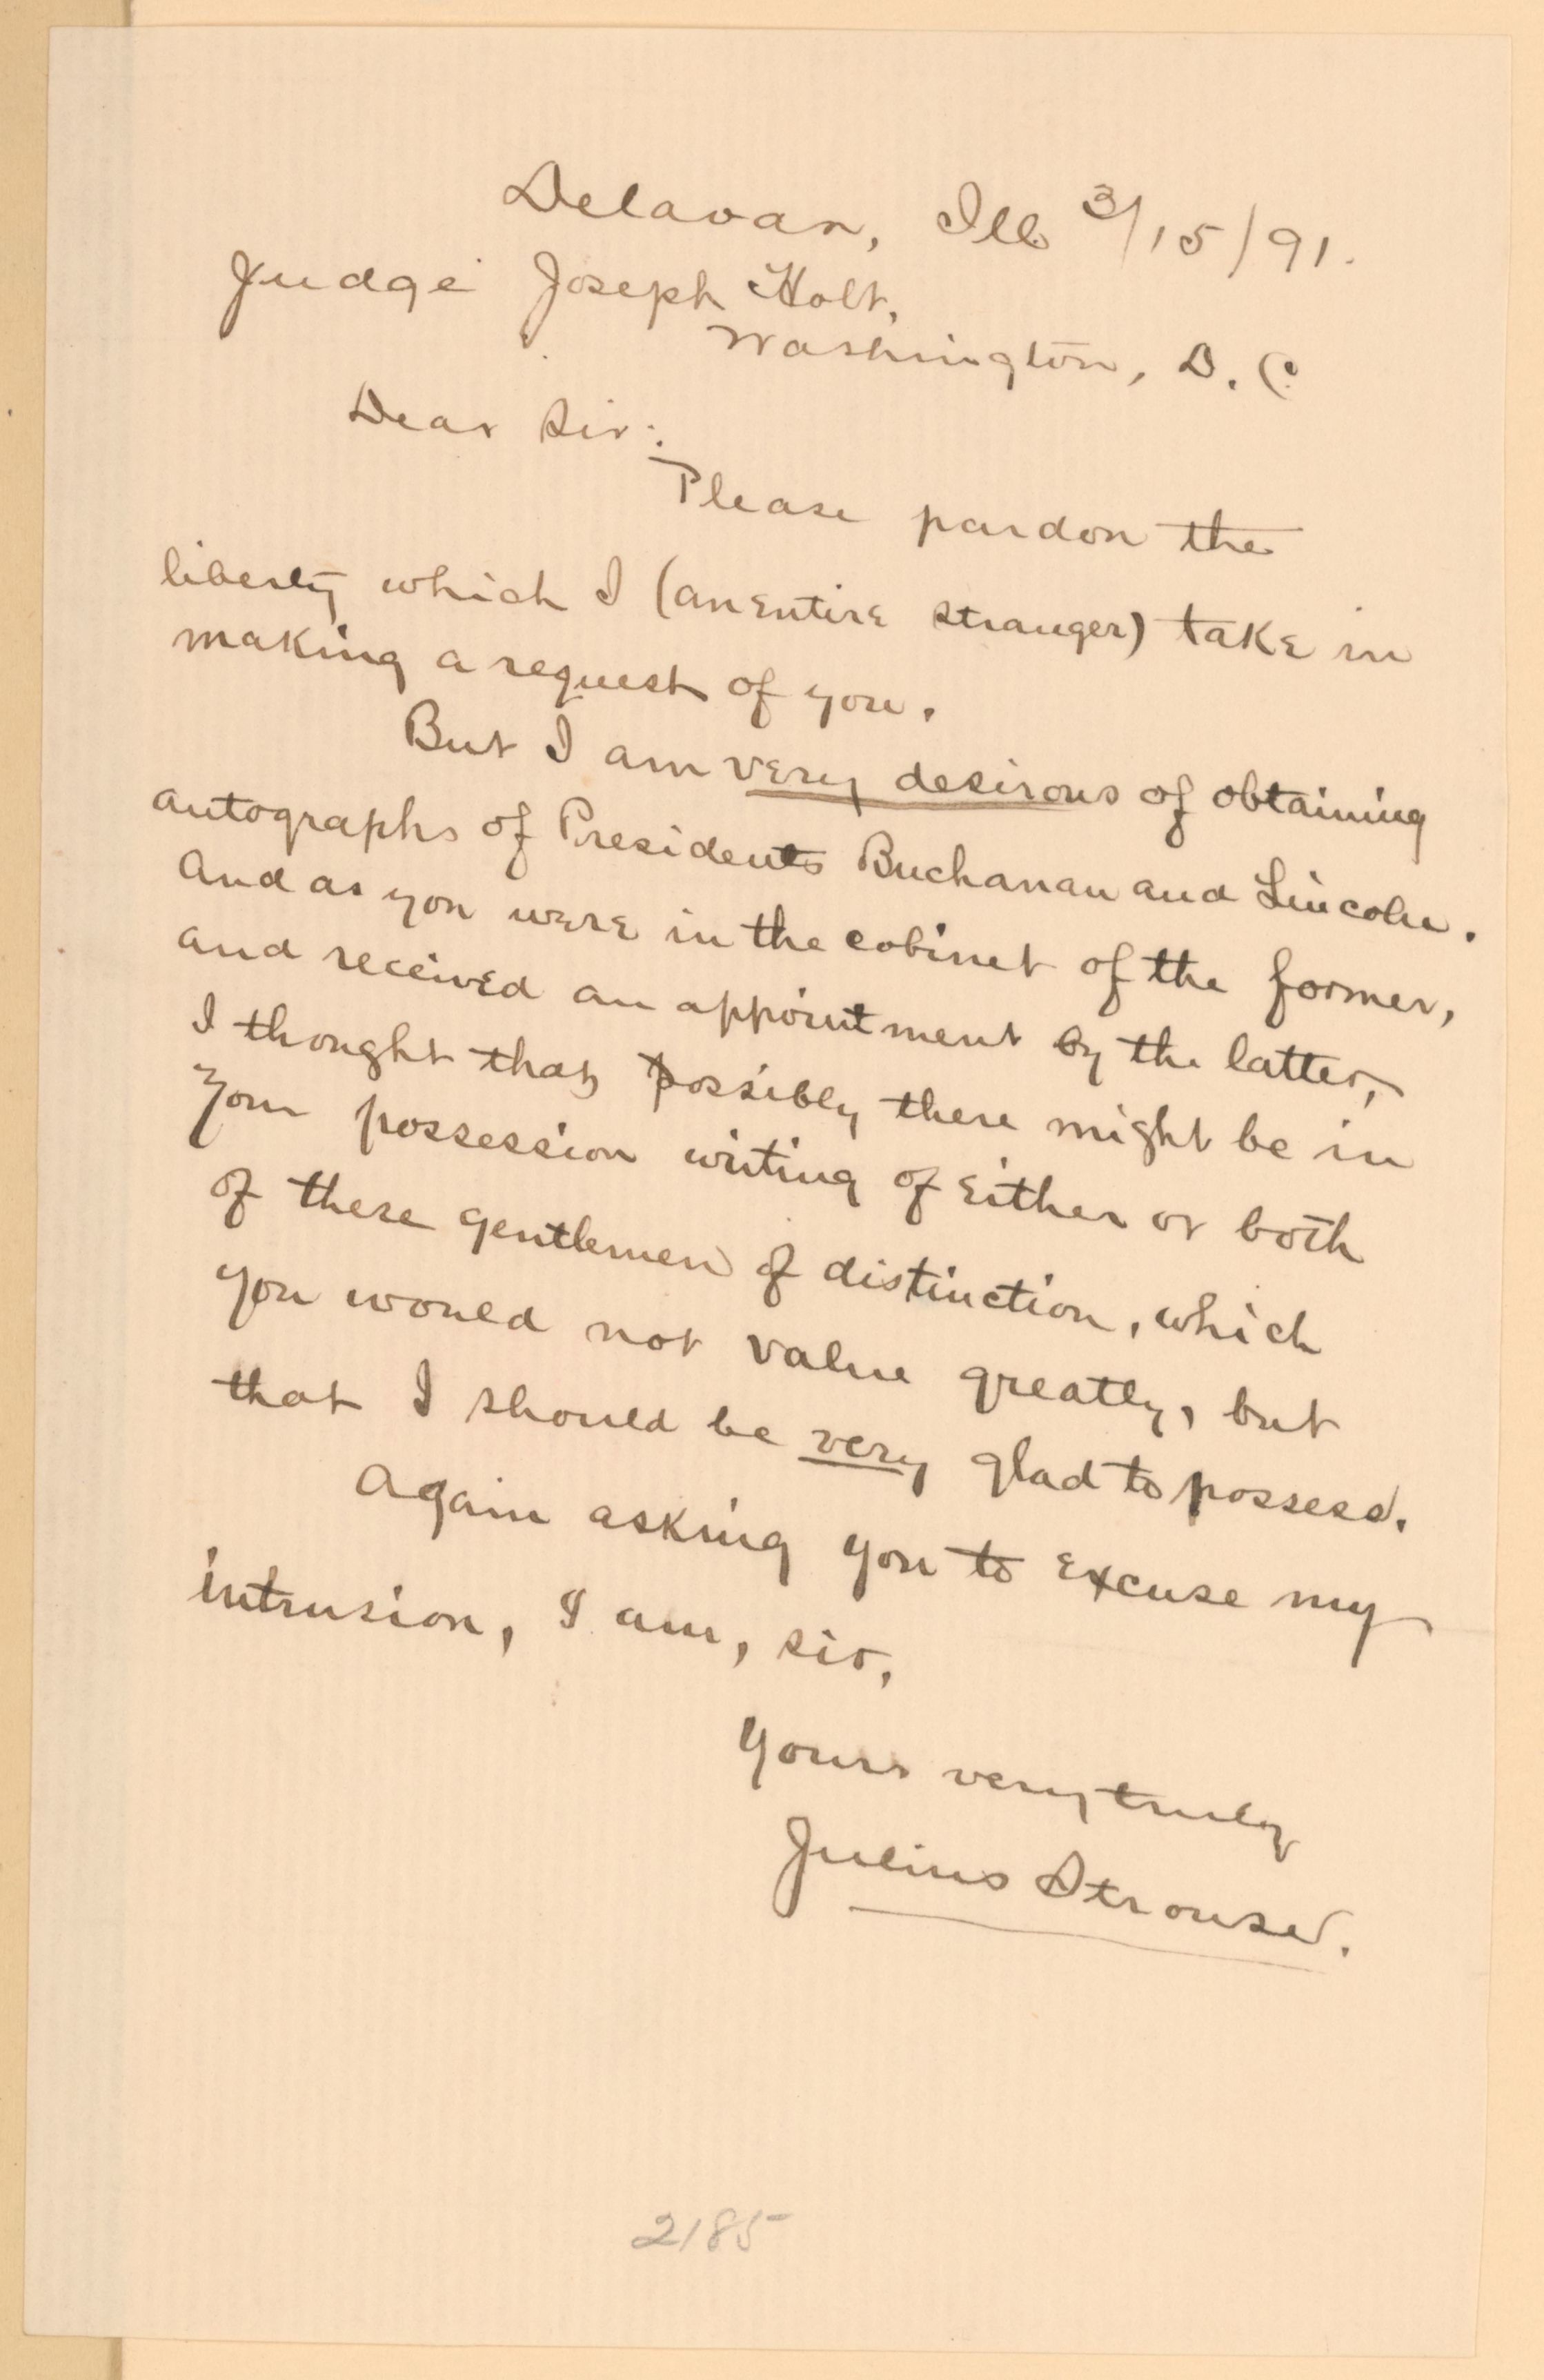 Delavan, Ills 3/15/91.
Judge Joseph Holt,
Washington, D. C.
Dear Sir:
Please pardon the
liberty which I (an entire stranger) take in
making a request of you.
But I am very desirous of obtaining
autographs of Presidents Buchanan and Lincoln.
And as you were in the cabinet of the former,
and received an appointment by the latter,
I thought that possibly there might be in
your possession writing of either or both
of these gentlemen of distinction, which
you would not value greatly, but
that I should be very glad to possess.
Again asking you to excuse my
intrusion, I am, sir,
Yours very truly
Julius Strouse.
2185